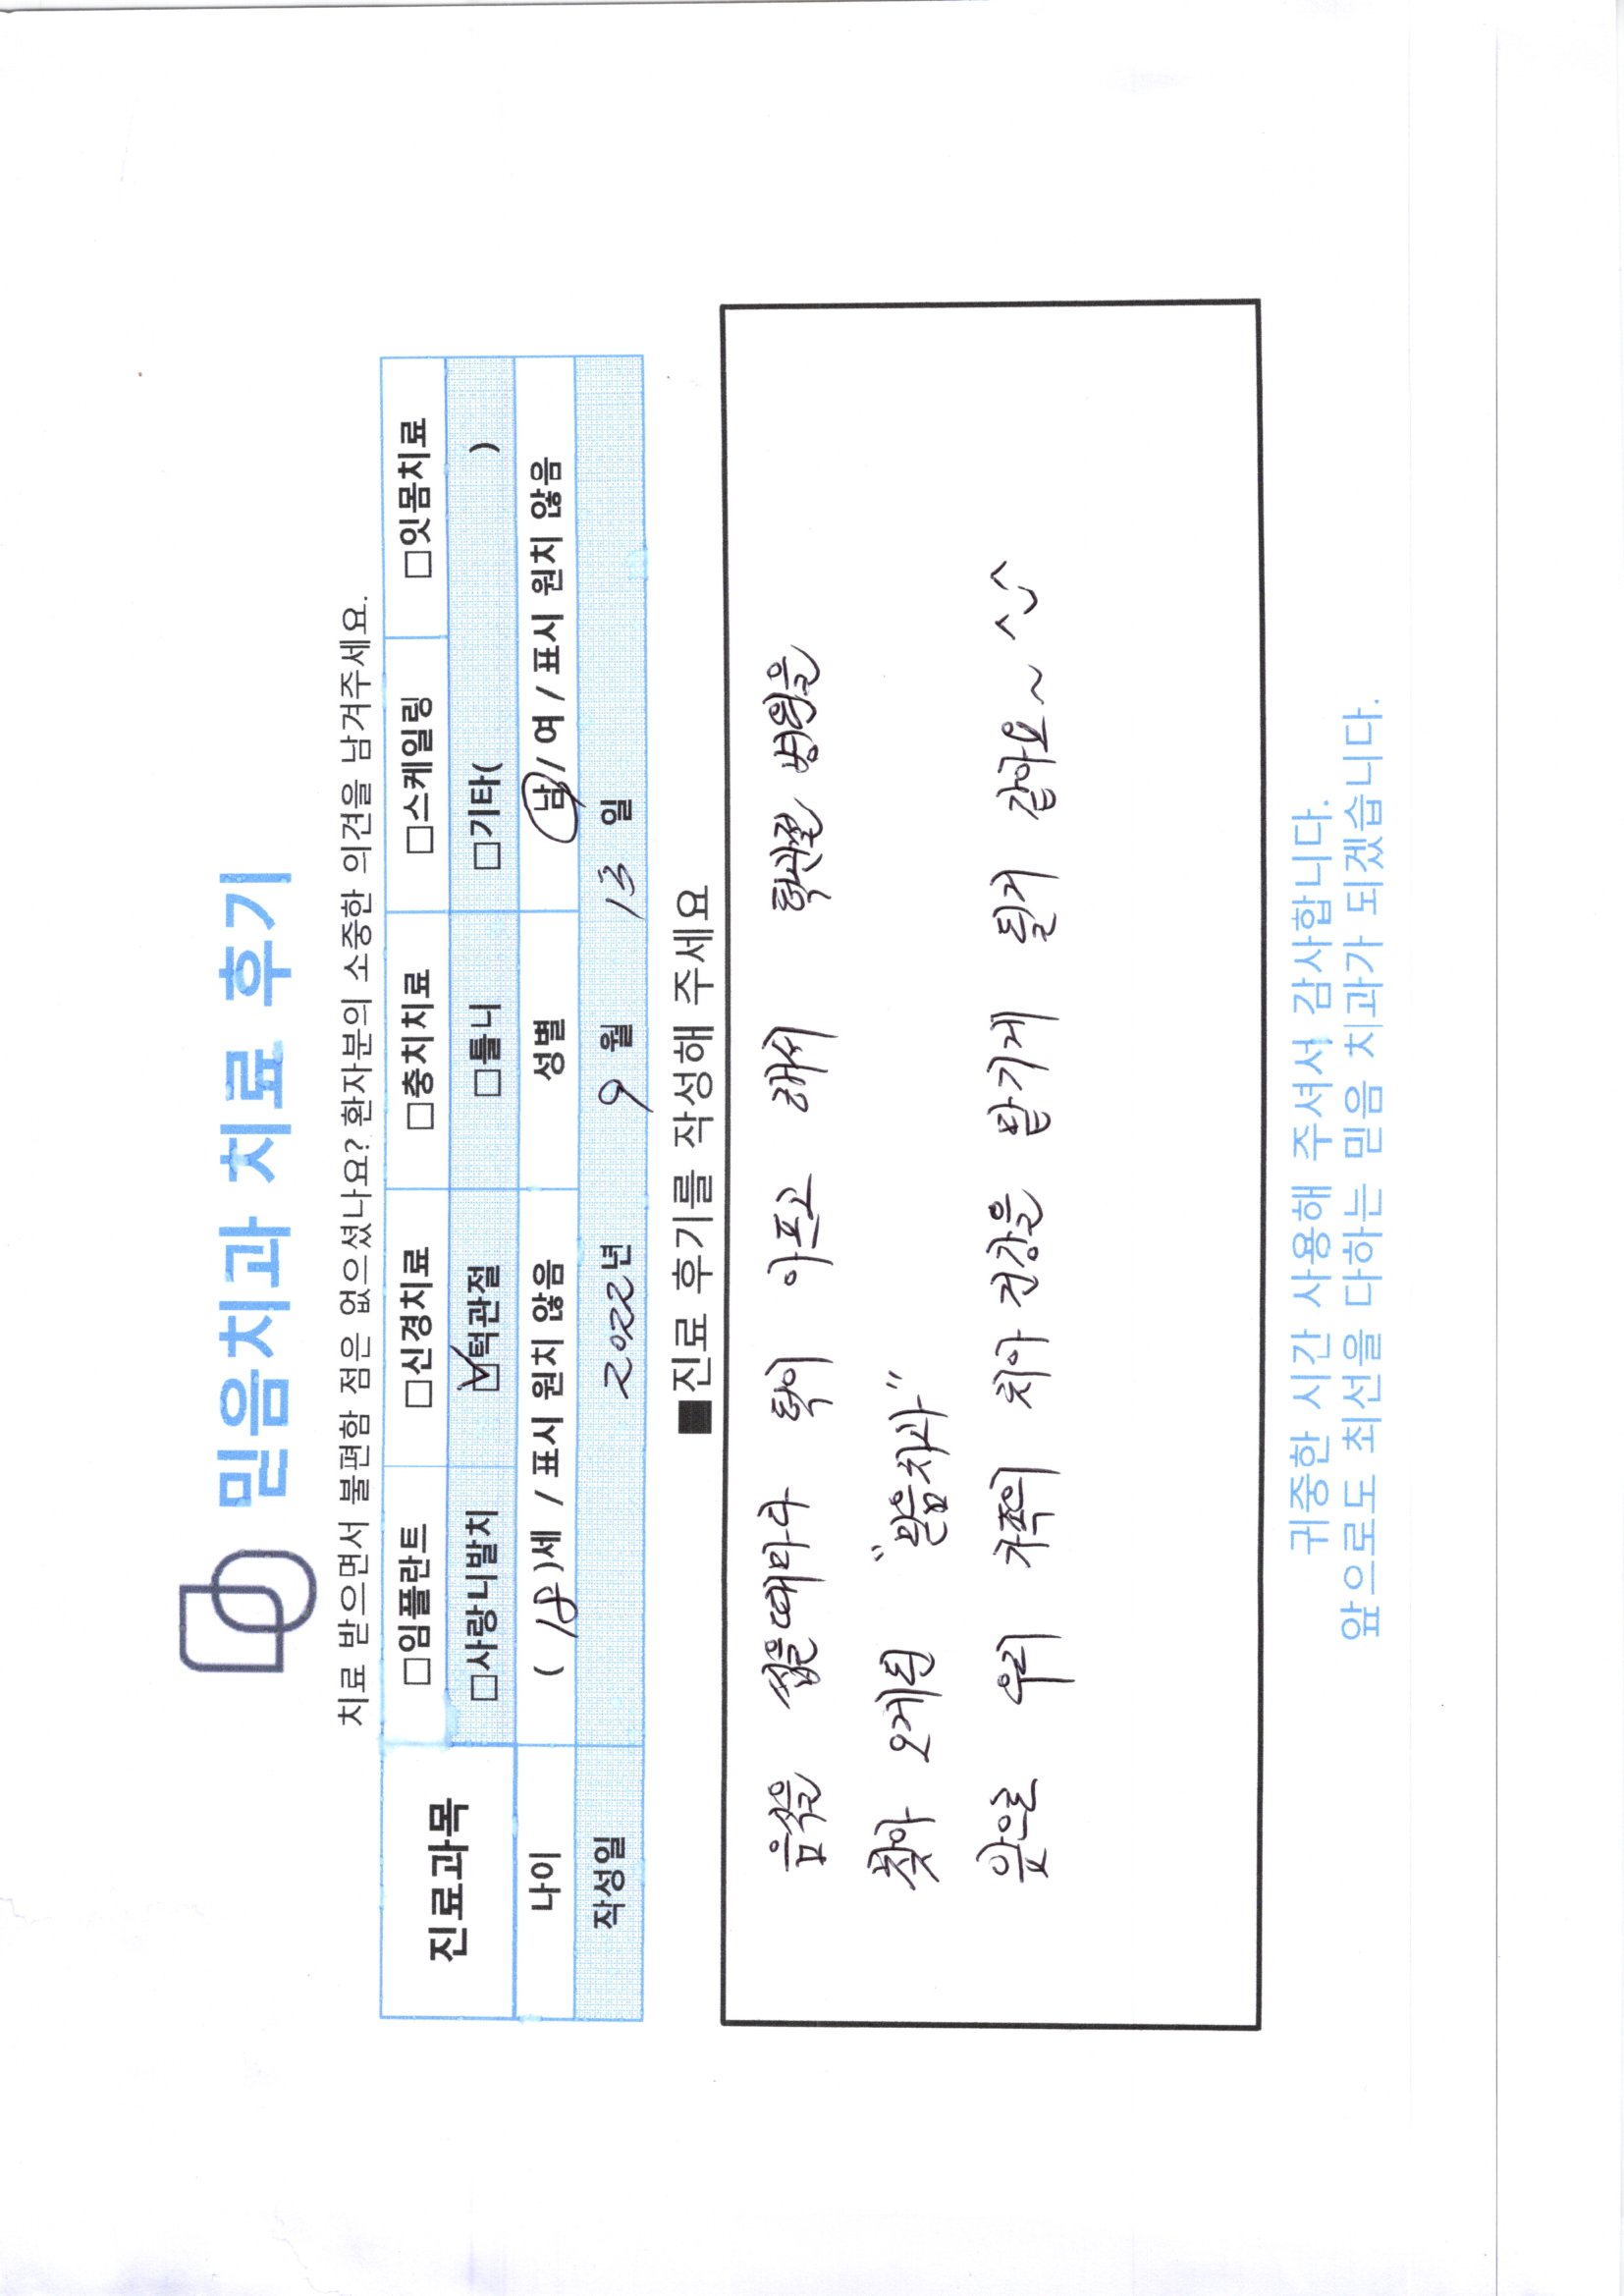 믿음치과 치료 후기
치료 받으면서 불편함 점은 없으셨나요? 환자분의 소중한 의견을 남겨주세요.
진료과목 □임플란트 □신경치료 □충치치료 □스케일링 □잇몸치료
□사랑니발치 ☑턱관절 □틀니 □기타( )
나이 (18)세 / 표시 원치 않음 성별 남/ 여 / 표시 원치 않음
작성일 2022년 9 월 13 일
■진료 후기를 작성해 주세요
음식을 씹을때마다 턱이 아프고 해서 턱관절 병원을
찾아 오게된 "믿음치과"
앞으로 우리 가족의 치아 건강을 맡기게 될거 같아요~ ^^
귀중한 시간 사용해 주셔서 감사합니다.
앞으로도 최선을 다하는 믿음 치과가 되겠습니다.